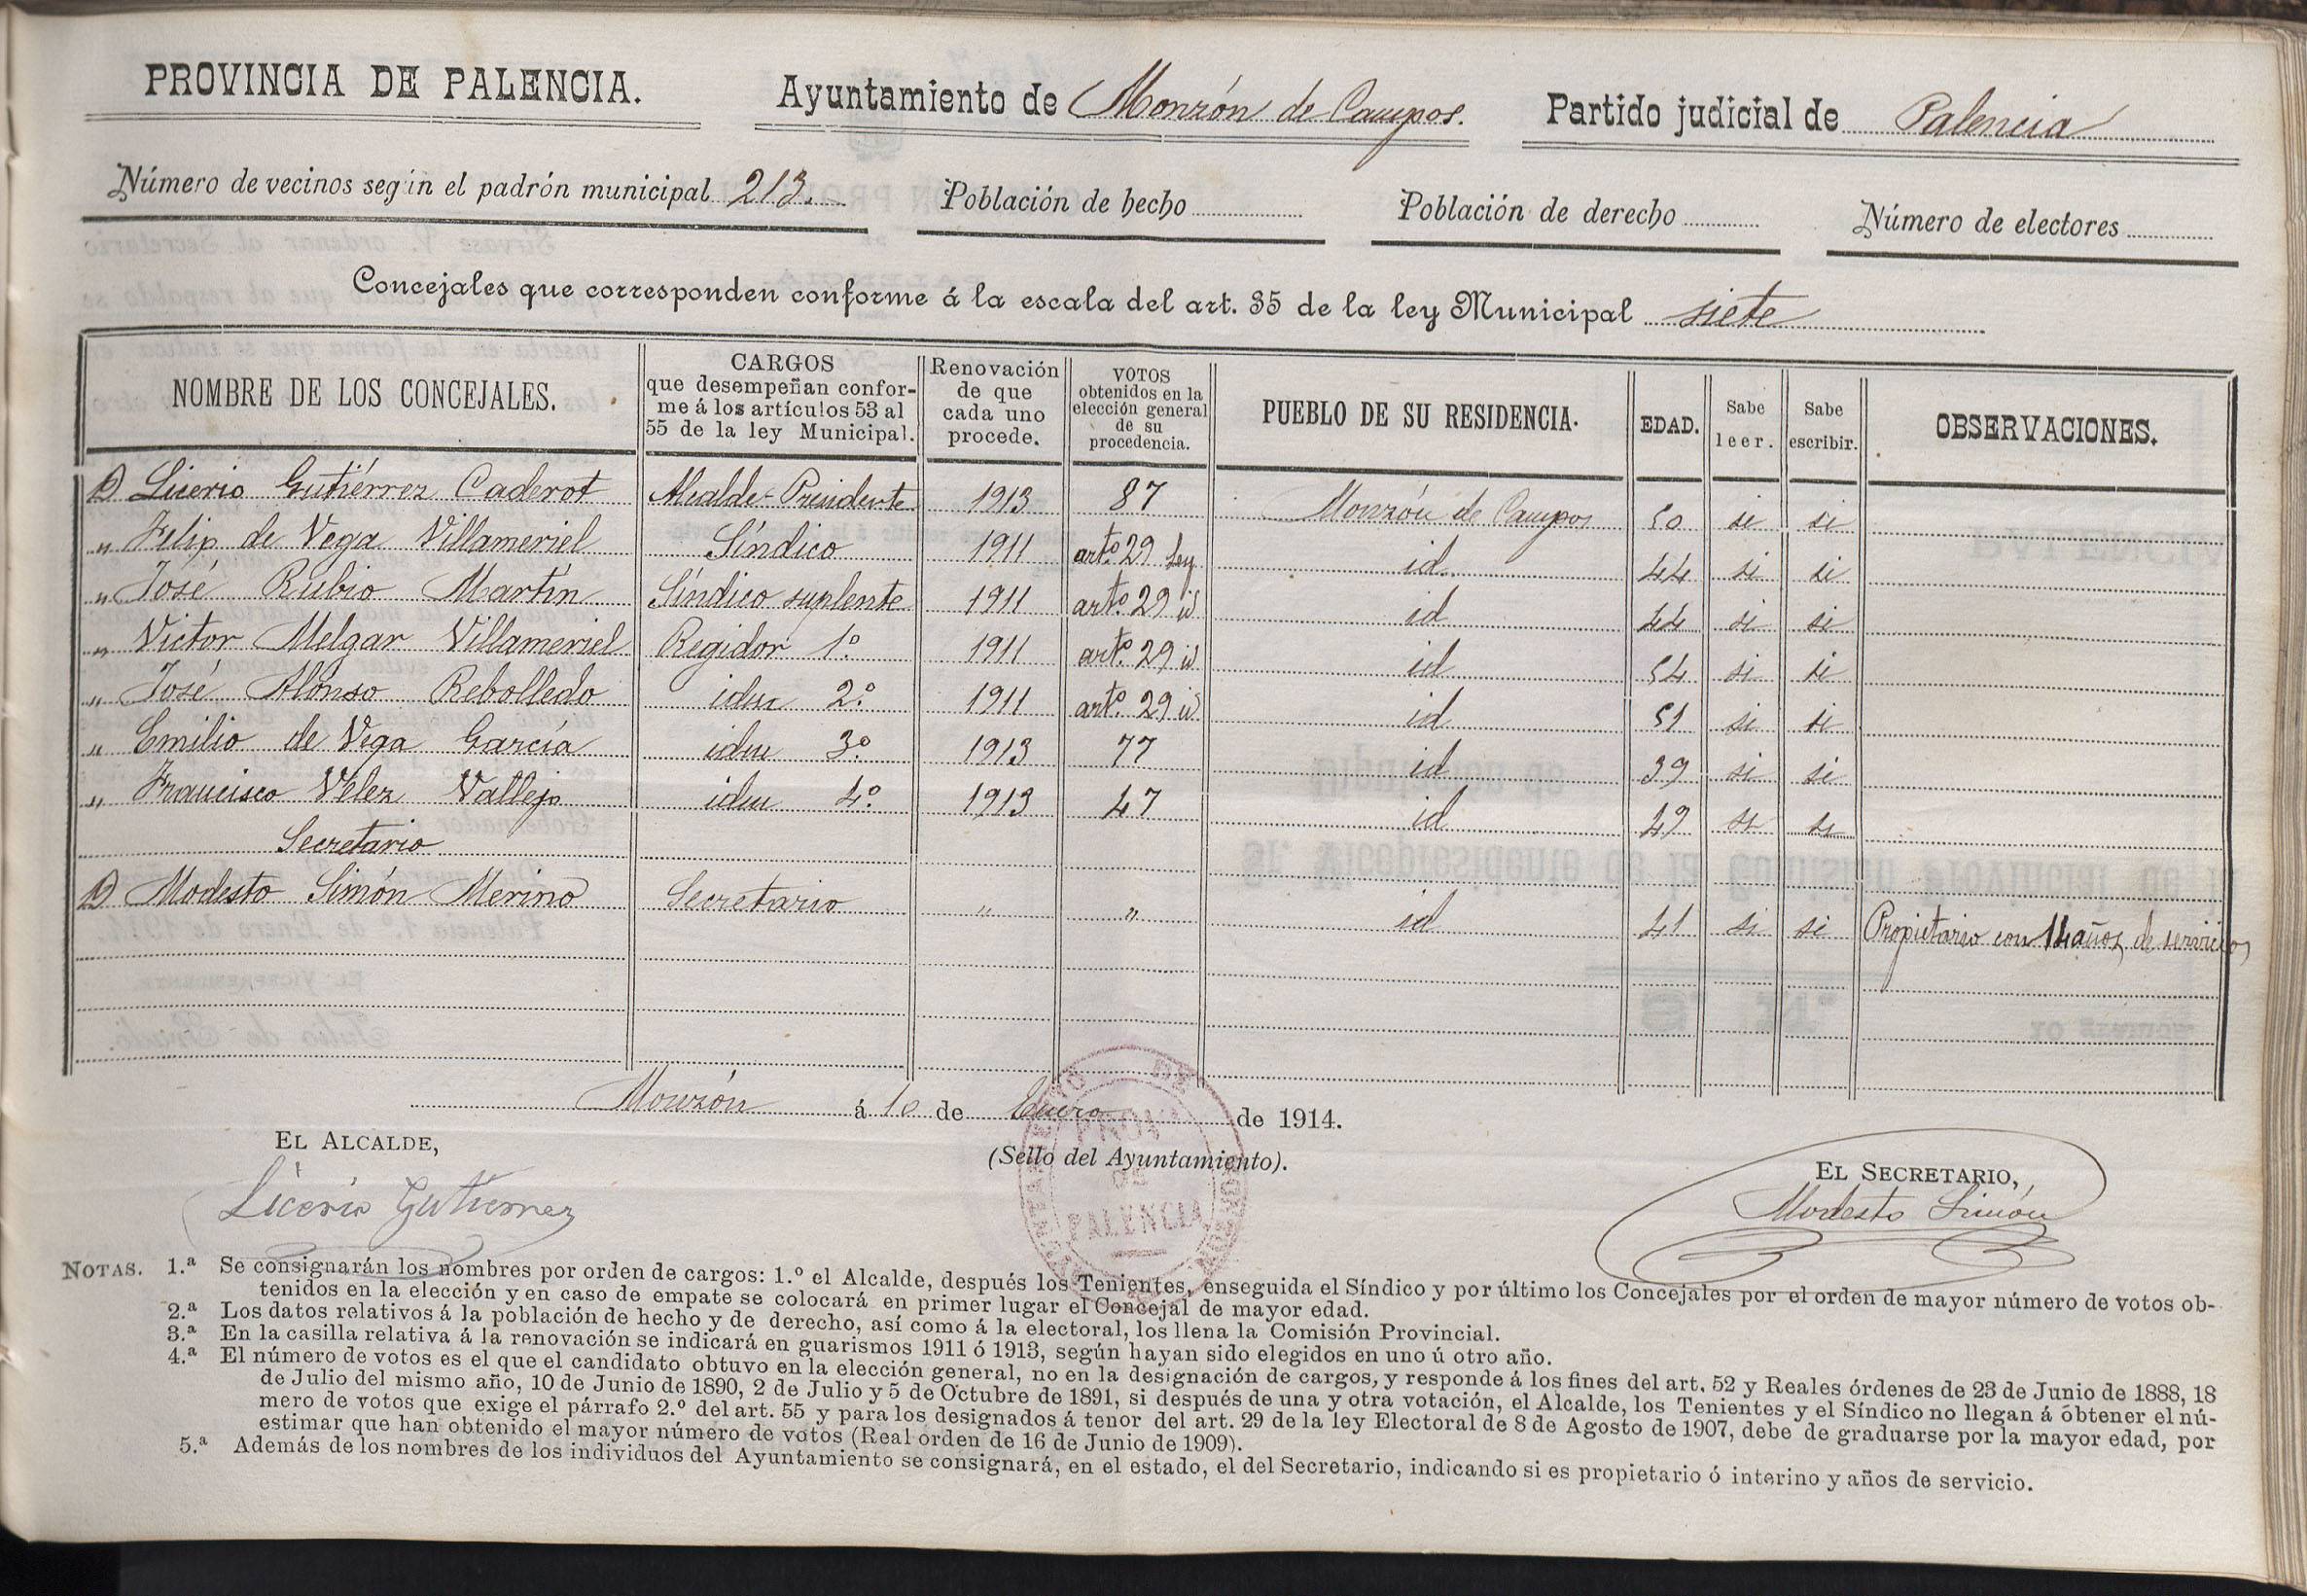 PROVINCIA DE PALENCIA. Ayuntamiento de Monzón de Campos. Partido judicial de Palencia
Número de vecinos según el padrón municipal 213. Población de hecho Población de derecho Número de electores
Concejales que corresponden conforme á la escala del art. 35 de la ley Municipal siete
NOMBRE DE LOS CONCEJALES. CARGOS que desempeñan conforme á los artículos 53 al 55 de la ley Municipal. Renovación de que cada uno procede. VOTOS obtenidos en la elección general de su procedencia. PUEBLO DE SU RESIDENCIA. EDAD. Sabe leer. Sabe escribir. OBSERVACIONES.
D Licerio Gutiérrez Caderot Alcalde-Presidente 1913 87 Monzón de Campos 50 si si
" Felip de Vega Villameriel Síndico 1911 artº 29 Ley id. 44 si si
" José Rubio Martín Síndico suplente 1911 artº 29 id id 44 si si
" Victor Melgar Villameriel Regidor 1º 1911 artº 29 id id 54 si si
" José Alonso Rebolledo idem 2º 1911 artº 29 id id 51 si si
" Emilio de Vega García idem 3º 1913 77 id 39 si si
" Francisco Velez Vallejo idem 4º 1913 47 id 49 si si
Secretario
D Modesto Simón Merino Secretario " " id 41 si si Propietario con 14 años de servicios
Monzón á 10 de Enero de 1914.
EL ALCALDE,
(Sello del Ayuntamiento).
EL SECRETARIO,
Licerio Gutierrez
Modesto Simón
PROVª
DE
PALENCIA
NOTAS. 1.ª Se consignarán los nombres por orden de cargos: 1.º el Alcalde, después los Tenientes, enseguida el Síndico y por último los Concejales por el orden de mayor número de votos ob-
tenidos en la elección y en caso de empate se colocará en primer lugar el Concejal de mayor edad.
2.ª Los datos relativos á la población de hecho y de derecho, así como á la electoral, los llena la Comisión Provincial.
3.ª En la casilla relativa á la renovación se indicará en guarismos 1911 ó 1913, según hayan sido elegidos en uno ú otro año.
4.ª El número de votos es el que el candidato obtuvo en la elección general, no en la designación de cargos, y responde á los fines del art. 52 y Reales órdenes de 23 de Junio de 1888, 18
de Julio del mismo año, 10 de Junio de 1890, 2 de Julio y 5 de Octubre de 1891, si después de una y otra votación, el Alcalde, los Tenientes y el Síndico no llegan á obtener el nú-
mero de votos que exige el párrafo 2.º del art. 55 y para los designados á tenor del art. 29 de la ley Electoral de 8 de Agosto de 1907, debe de graduarse por la mayor edad, por
estimar que han obtenido el mayor número de votos (Real orden de 16 de Junio de 1909).
5.ª Además de los nombres de los individuos del Ayuntamiento se consignará, en el estado, el del Secretario, indicando si es propietario ó interino y años de servicio.